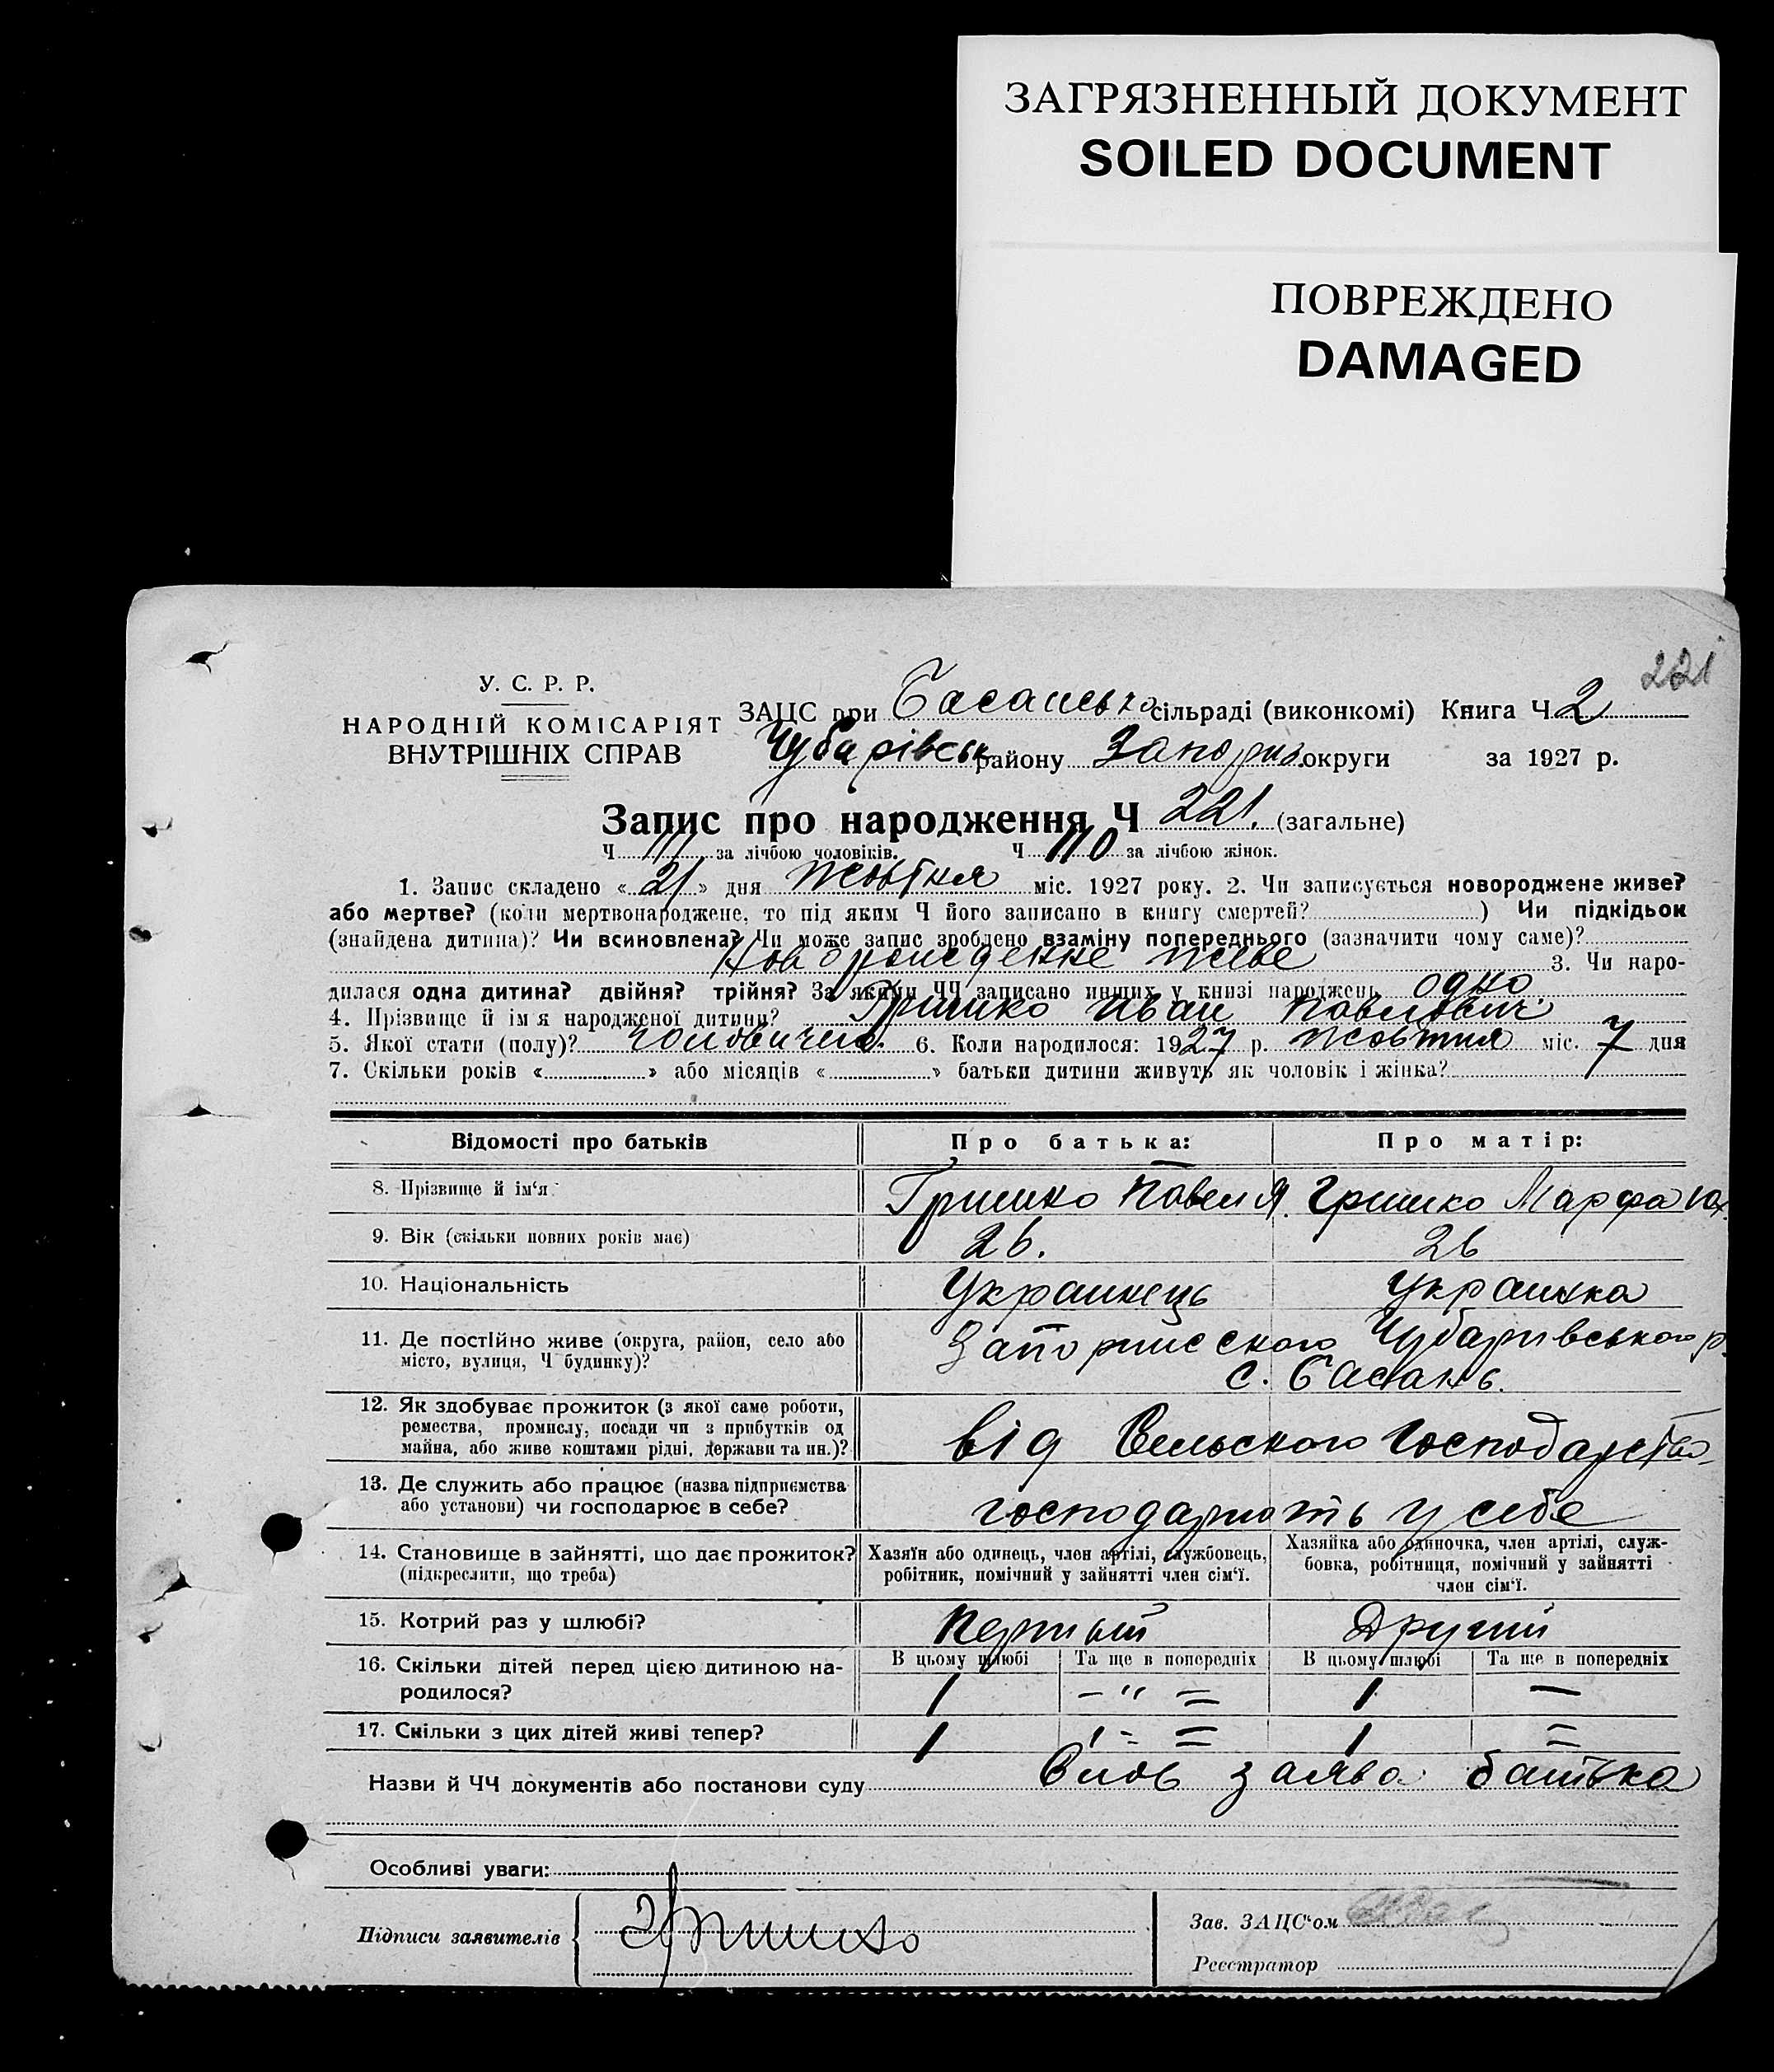 ЗАГРЯЗНЕННЫЙ ДОКУМЕНТ
SOILED DOCUMENT
ПОВРЕЖДЕНО
DAMAGED
221
У. С. Р. Р.
НАРОДНІЙ КОМІСАРІЯТ
ВНУТРІШНІХ СПРАВ
ЗАЦС при Басансько сільраді (виконкомі) Книга Ч 2
Чубарівськ району Запориз. округи за 1927 р.
Запис про народження Ч 221. (загальне)
Ч 111 за лічбою чоловіків. Ч 110 за лічбою жінок.
1. Запис складено « 21 » дня жовтня міс. 1927 року. 2. Чи записується новороджене живе?
або мертве? (коли мертвонароджене, то під яким Ч його записано в книгу смертей? ) Чи підкідьок
(знайдена дитина)? Чи всиновлена? Чи може запис зроблено взаміну попереднього (зазначити чому саме)?
Новорожденне живе 3. Чи наро-
дилася одна дитина? двійня? трійня? За якими ЧЧ записано инших у книзі народжень одно
4. Прізвище й ім'я народженої дитини? Гришко Иван Павлович
5. Якої стати (полу)? чоловичеє. 6. Коли народилося: 1927 р. жовтня міс. 7 дня
7. Скільки років « » або місяців « » батьки дитини живуть як чоловік і жінка?
Відомості про батьків Про батька: Про матір:
8. Прізвище й ім'я Гришко Павел Я. Гришко Марфа Юх.
9. Вік (скільки повних років має) 26. 26
10. Національність Украинець Украинка
11. Де постійно живе (округа, район, село або
місто, вулиця, Ч будинку)? Запоризского Чубаривського р.
с. Басань.
12. Як здобуває прожиток (з якої саме роботи,
ремества, промислу, посади чи з прибутків од
майна, або живе коштами рідні, держави та ин.)? від Сельского Господарства
13. Де служить або працює (назва підприємства
або установи) чи господарює в себе? господарюють у себе
14. Становище в зайнятті, що дає прожиток?
(підкреслити, що треба)
Хазяїн або одинець, член артілі, службовець,
робітник, помічний у зайнятті член сім'ї.
Хазяйка або одиночка, член артілі, служ-
бовка, робітниця, помічний у зайнятті
член сім'ї.
15. Котрий раз у шлюбі? Перший Другий
16. Скільки дітей перед цією дитиною на-
родилося?
В цьому шлюбі Та ще в попередніх В цьому шлюбі Та ще в попередніх
1 – " = 1 —
17. Скільки з цих дітей живі тепер? 1 " = 1 =
Назви й ЧЧ документів або постанови суду заява батька
Особливі уваги:
Підписи заявителів Гришко
Зав. ЗАЦС'ом
Реєстратор